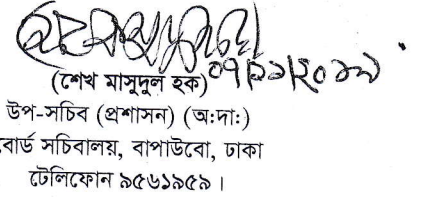 (শেখ মাসুদুল হক) ০৭|১১|২০১৯
উপ-সচিব (প্রশাসন) (অ:দা:)
বোর্ড সচিবালয়, বাপাউবো, ঢাকা
টেলিফোন ৯৫৬১৯৫৯ ।